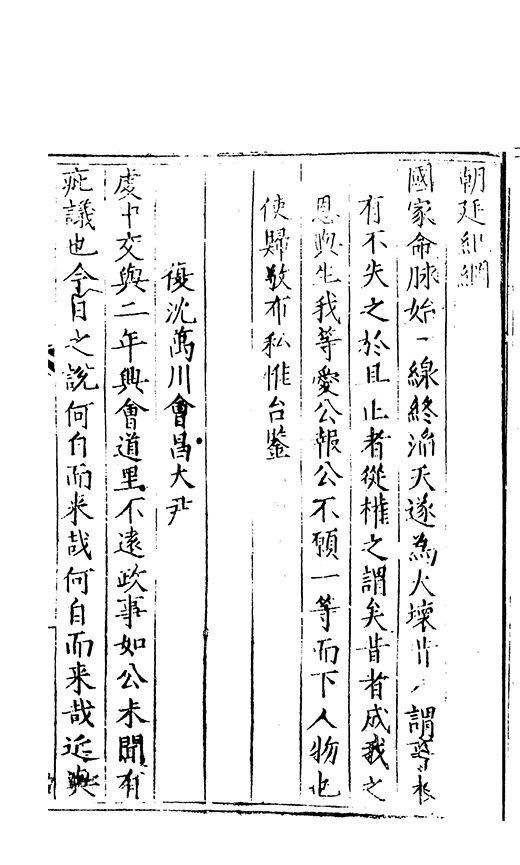 朝廷紀綱
國家命脉始一線終流天遂為大壞昔人謂寧
有不失之於且止者從權之謂矣昔者成我之
恩與生我等愛公報公不願一等而下人物也
使歸敬布私惟台鑒
復沈萬川會昌大尹
虔中交與二年興會道里不遠政事如公未聞有
疵議也今日之說何自而来哉何自而来哉近與